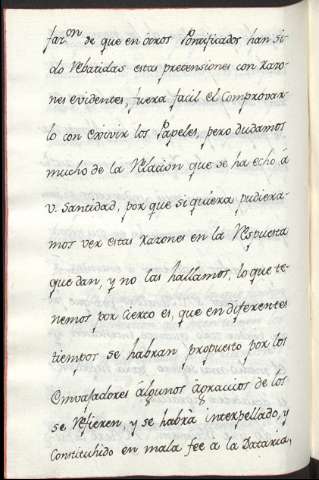 far.ⁿ de que en otros Pontificados han si-
do rebatidas estas pretensiones con razo-
nes evidentes, fuera facil el Comprovar-
lo con exivir los Papeles, pero dudamos
mucho de la relacion que se ha echo á
V. Santidad, por que si quiera pudiera-
mos ver estas razones en la respuesta
que dan, y no las hallamos, lo que te-
nemos por cierto es, que en diferentes
tiempos se habran propuesto por los
Emvajadores álgunos ágravios de los
se refieren, y se habrà interpellado, y
Constituhido en mala fee à la Dataria,